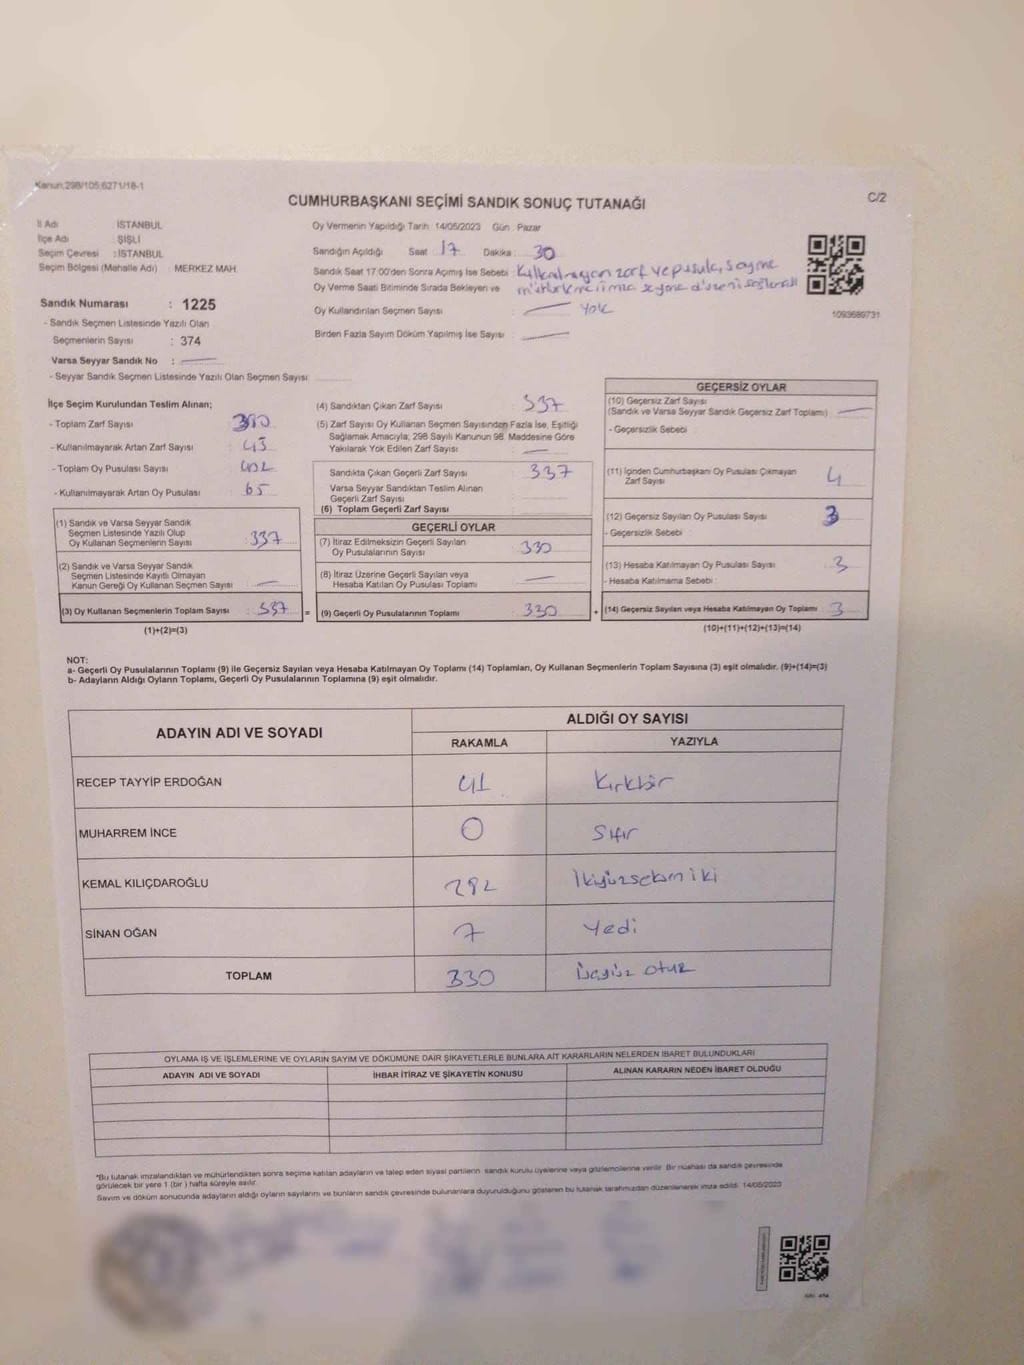 Kanun:298/105;6271/18-1
C/2
CUMHURBAŞKANI SEÇİMİ SANDIK SONUÇ TUTANAĞI
İl Adı : İSTANBUL
İlçe Adı : ŞİŞLİ
Seçim Çevresi : İSTANBUL
Seçim Bölgesi (Mahalle Adı) : MERKEZ MAH.
Oy Vermenin Yapıldığı Tarih : 14/05/2023 Gün : Pazar
Sandığın Açıldığı Saat : 17 Dakika : 30
Sandık Saat 17.00'den Sonra Açımış İse Sebebi : Kullanılmayan zarf ve pusula, sayma
Oy Verme Saati Bitiminde Sırada Bekleyen ve imza sayma düzeni
Oy Kullandırılan Seçmen Sayısı : — Yok
Birden Fazla Sayım Döküm Yapılmış İse Sayısı : —
1093689731
Sandık Numarası : 1225
- Sandık Seçmen Listesinde Yazılı Olan
Seçmenlerin Sayısı : 374
Varsa Seyyar Sandık No : —
- Seyyar Sandık Seçmen Listesinde Yazılı Olan Seçmen Sayısı
İlçe Seçim Kurulundan Teslim Alınan;
- Toplam Zarf Sayısı : 380
- Kullanılmayarak Artan Zarf Sayısı : 43
- Toplam Oy Pusulası Sayısı : 402
- Kullanılmayarak Artan Oy Pusulası : 65
(1) Sandık ve Varsa Seyyar Sandık
Seçmen Listesinde Yazılı Olup
Oy Kullanan Seçmenlerin Sayısı : 337
(2) Sandık ve Varsa Seyyar Sandık
Seçmen Listesinde Kayıtlı Olmayan
Kanun Gereği Oy Kullanan Seçmen Sayısı : —
(3) Oy Kullanan Seçmenlerin Toplam Sayısı : 337 =
(1)+(2)=(3)
(4) Sandıktan Çıkan Zarf Sayısı : 337
(5) Zarf Sayısı Oy Kullanan Seçmen Sayısından Fazla İse, Eşitliği
Sağlamak Amacıyla; 298 Sayılı Kanunun 98. Maddesine Göre
Yakılarak Yok Edilen Zarf Sayısı : —
Sandıkta Çıkan Geçerli Zarf Sayısı : 337
Varsa Seyyar Sandıktan Teslim Alınan
Geçerli Zarf Sayısı
(6) Toplam Geçerli Zarf Sayısı
GEÇERLİ OYLAR
(7) İtiraz Edilmeksizin Geçerli Sayılan
Oy Pusulalarının Sayısı : 330
(8) İtiraz Üzerine Geçerli Sayılan veya
Hesaba Katılan Oy Pusulası Toplamı : —
(9) Geçerli Oy Pusulalarının Toplamı : 330 +
GEÇERSİZ OYLAR
(10) Geçersiz Zarf Sayısı
(Sandık ve Varsa Seyyar Sandık Geçersiz Zarf Toplamı) : —
- Geçersizlik Sebebi :
(11) İçinden Cumhurbaşkanı Oy Pusulası Çıkmayan
Zarf Sayısı : 4
(12) Geçersiz Sayılan Oy Pusulası Sayısı : 3
- Geçersizlik Sebebi :
(13) Hesaba Katılmayan Oy Pusulası Sayısı : 3
- Hesaba Katılmama Sebebi :
(14) Geçersiz Sayılan veya Hesaba Katılmayan Oy Toplamı : 3
(10)+(11)+(12)+(13)=(14)
NOT:
a- Geçerli Oy Pusulalarının Toplamı (9) ile Geçersiz Sayılan veya Hesaba Katılmayan Oy Toplamı (14) Toplamları, Oy Kullanan Seçmenlerin Toplam Sayısına (3) eşit olmalıdır. (9)+(14)=(3)
b- Adayların Aldığı Oyların Toplamı, Geçerli Oy Pusulalarının Toplamına (9) eşit olmalıdır.
ADAYIN ADI VE SOYADI
ALDIĞI OY SAYISI
RAKAMLA YAZIYLA
RECEP TAYYİP ERDOĞAN 41 Kırkbir
MUHARREM İNCE 0 Sıfır
KEMAL KILIÇDAROĞLU 282 İkiyüzseksen iki
SİNAN OĞAN 7 Yedi
TOPLAM 330 üçyüz otuz
OYLAMA İŞ VE İŞLEMLERİNE VE OYLARIN SAYIM VE DÖKÜMÜNE DAİR ŞİKAYETLERLE BUNLARA AİT KARARLARIN NELERDEN İBARET BULUNDUKLARI
ADAYIN ADI VE SOYADI İHBAR İTİRAZ VE ŞİKAYETİN KONUSU ALINAN KARARIN NEDEN İBARET OLDUĞU
*Bu tutanak imzalandıktan ve mühürlendikten sonra seçime katılan adayların ve talep eden siyasi partilerin sandık kurulu üyelerine veya gözlemcilerine verilir. Bir nüshası da sandık çevresinde
görülecek bir yere 1 (bir ) hafta süreyle asılır.
Sayım ve döküm sonucunda adayların aldığı oyların sayılarını ve bunların sandık çevresinde bulunanlara duyurulduğunu gösteren bu tutanak tarafımızdan düzenlenerek imza edildi. 14/05/2023